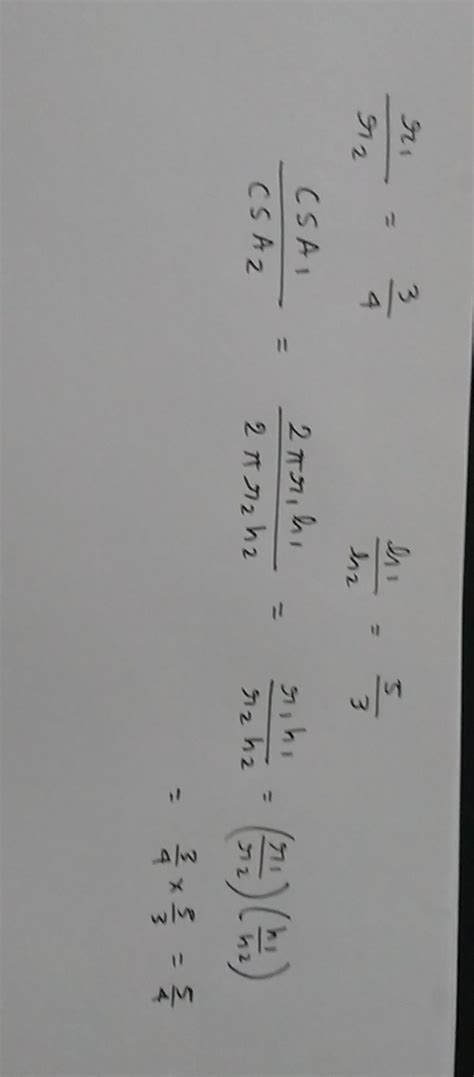 r₁/r₂ = 3/4    h₁/h₂ = 5/3
CSA₁/CSA₂ = 2πr₁h₁/2πr₂h₂ = r₁h₁/r₂h₂ = (r₁/r₂)(h₁/h₂)
= 3/4 × 5/3 = 5/4